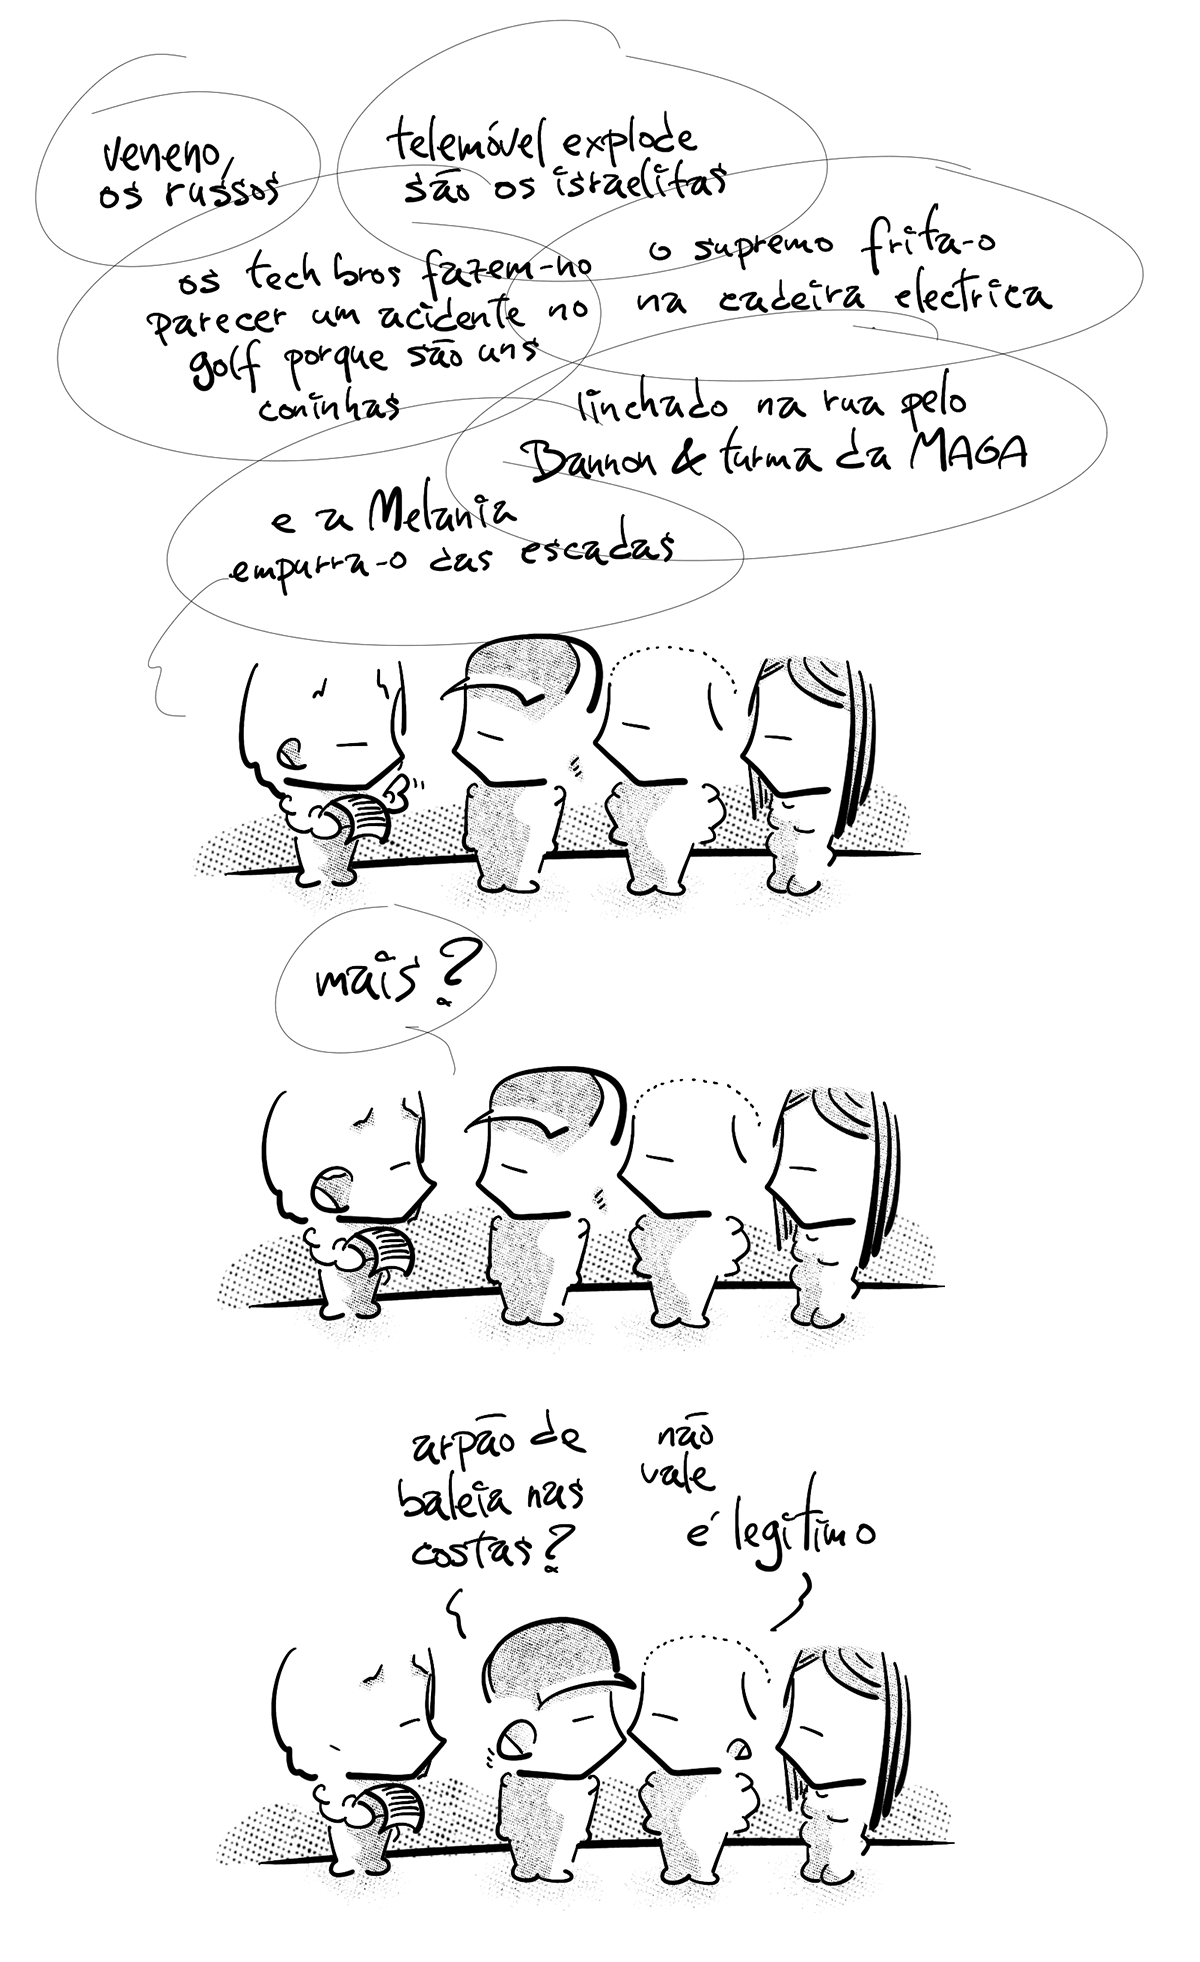 veneno,
os russos
telemóvel explode
são os israelitas
os tech bros fazem-no
parecer um acidente no
golf porque são uns
coninhas
o supremo frita-o
na cadeira electrica
linchado na rua pelo
Bannon & turma da MAGA
e a Melania
empurra-o das escadas
mais?
arpão de
baleia nas
costas?
não
vale
é legítimo